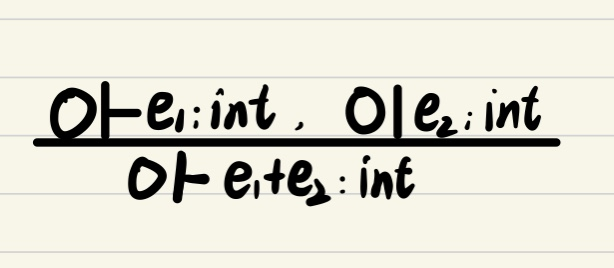 O⊢e₁: int , O|e₂: int
O⊢ e₁+e₂ : int